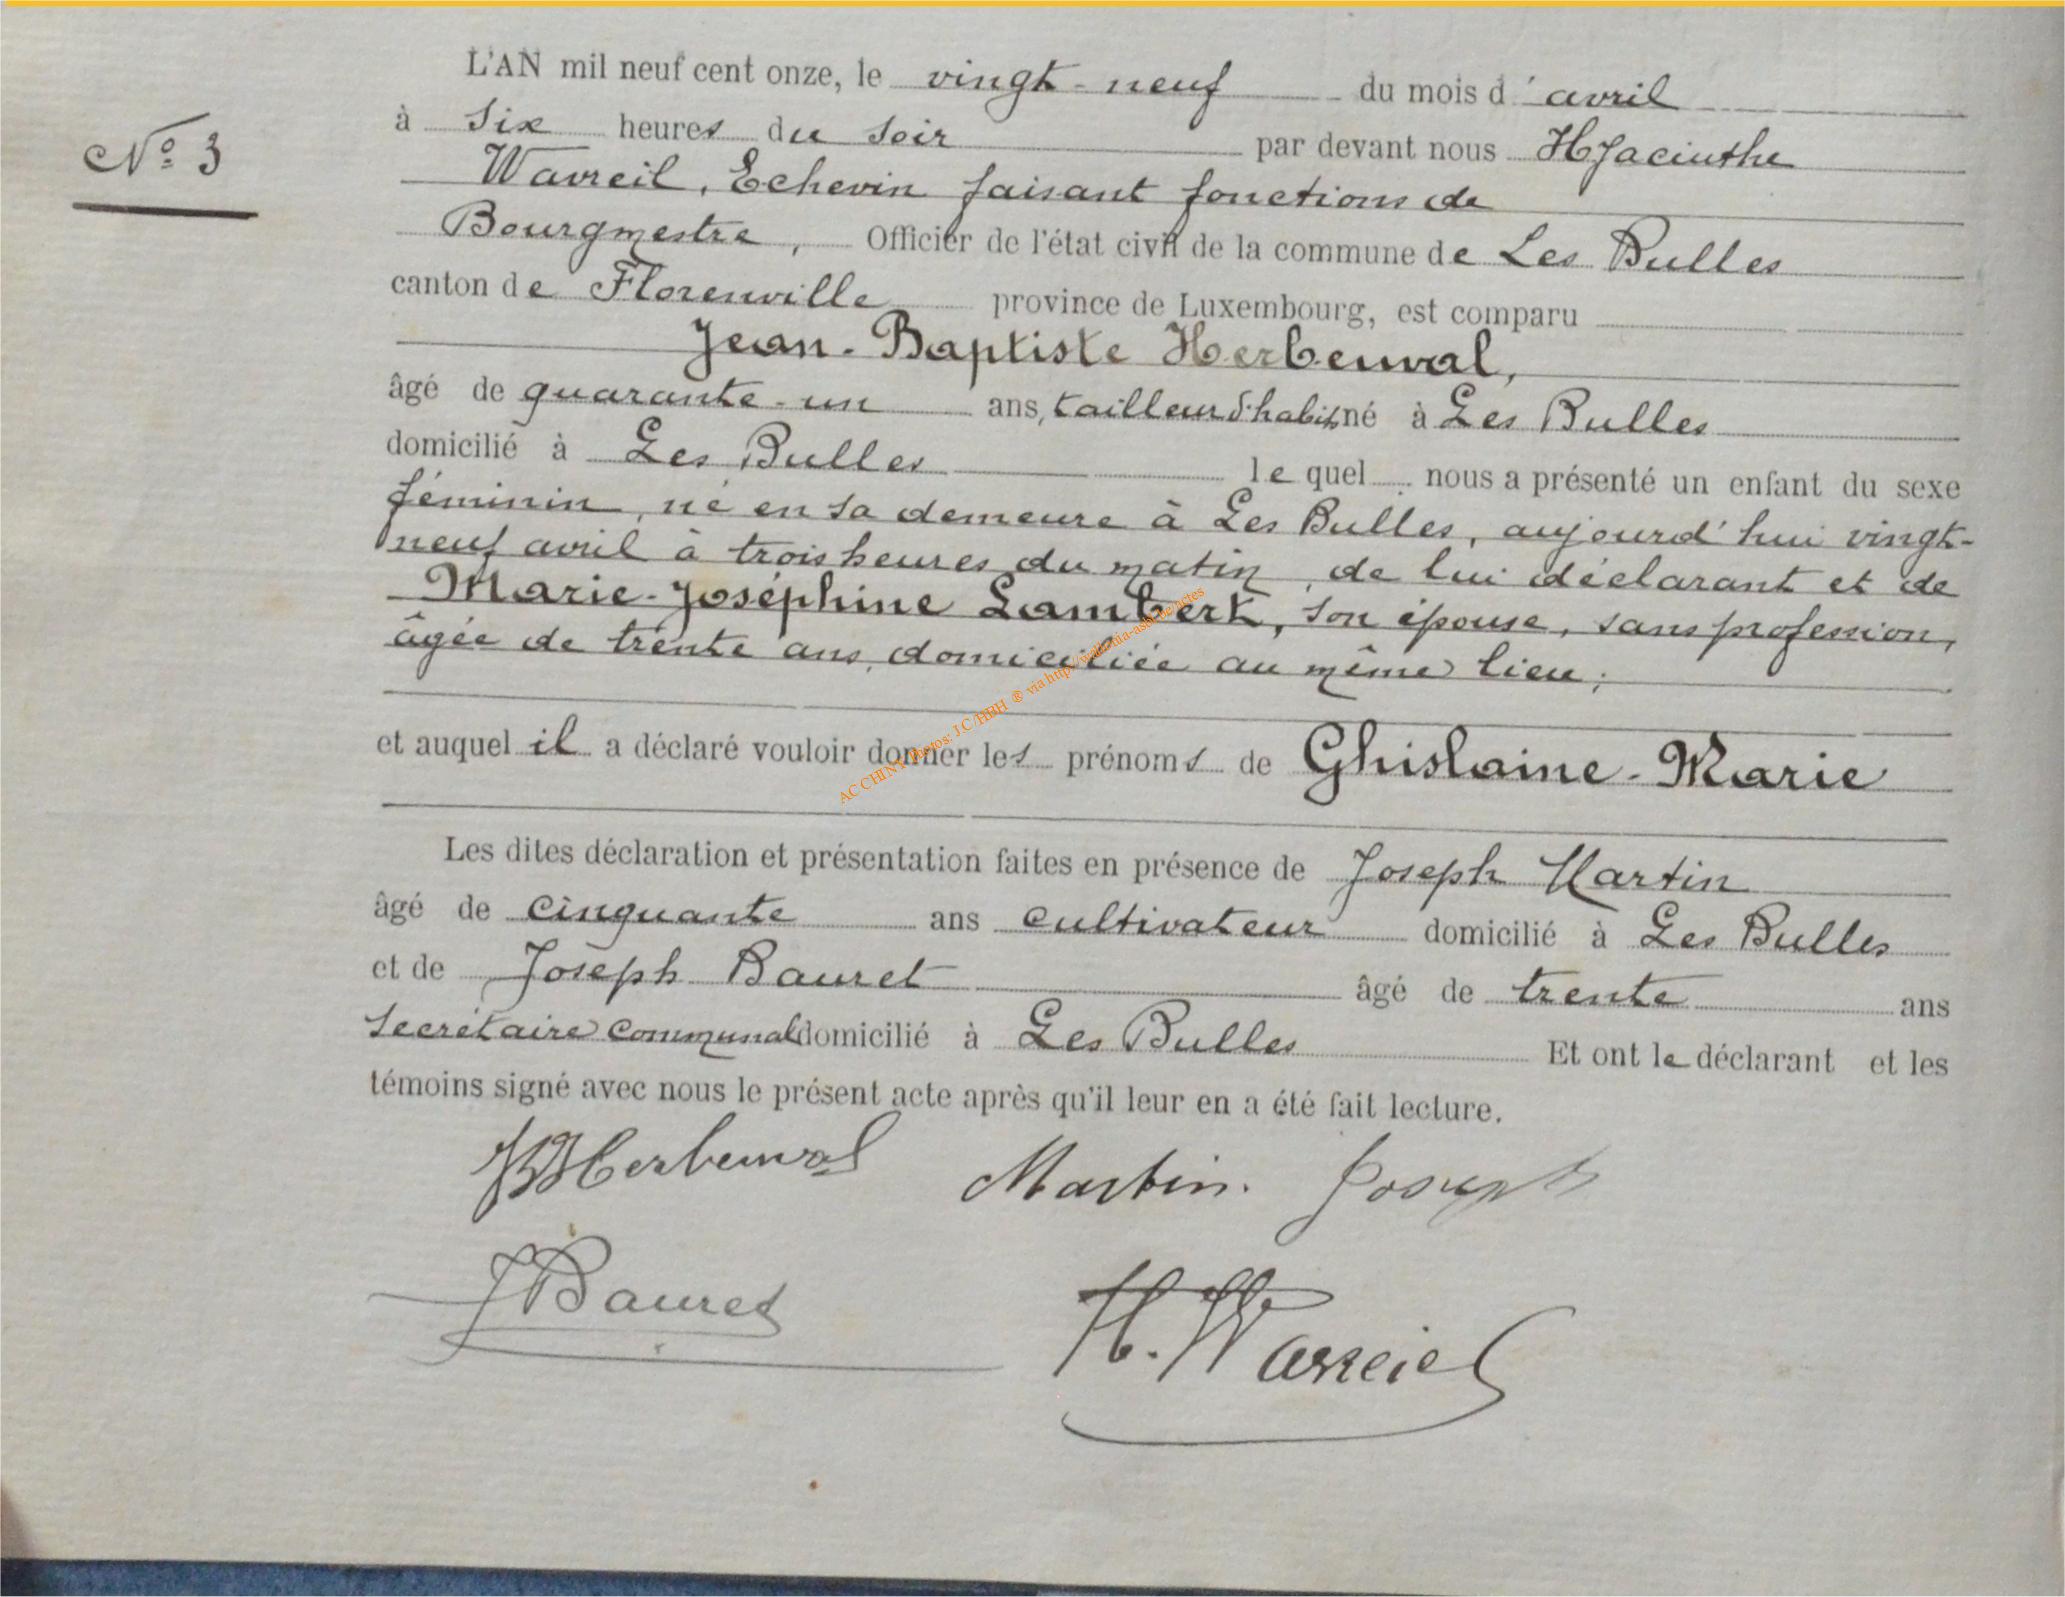 L'AN mil neuf cent onze, le vingt-neuf du mois d'avril
N° 3
à six heures du soir par devant nous Hyacinthe
Wavreil, Echevin faisant fonctions de
Bourgmestre, Officier de l'état civil de la commune de Les Bulles
canton de Florenville province de Luxembourg, est comparu
Jean-Baptiste Herbeuval,
âgé de quarante-un ans, tailleur d'habits né à Les Bulles
domicilié à Les Bulles lequel nous a présenté un enfant du sexe
féminin, né en sa demeure à Les Bulles, aujourd'hui vingt-
neuf avril à trois heures du matin, de lui déclarant et de
Marie-Joséphine Lambert, son épouse, sans profession,
âgée de trente ans, domiciliée au même lieu;
et auquel il a déclaré vouloir donner les prénoms de Ghislaine-Marie
AC CHINY Photos: J.C/HBH ® via http://wallonia-asbl.be/actes
Les dites déclaration et présentation faites en présence de Joseph Martin
âgé de cinquante ans cultivateur domicilié à Les Bulles
et de Joseph Bauret âgé de trente ans
secrétaire communal domicilié à Les Bulles Et ont le déclarant et les
témoins signé avec nous le présent acte après qu'il leur en a été fait lecture.
JBHerbeuval Martin. Joseph
JBauret H. Wavreil